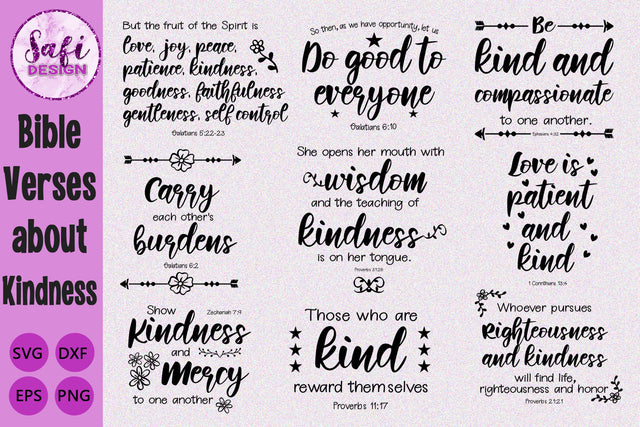 Safi
DESIGN
Bible
Verses
about
Kindness
SVG
DXF
EPS
PNG
But the fruit of the Spirit is
love, joy, peace,
patience, kindness,
goodness, faithfulness
gentleness, self control
Galatians 5:22-23
So then, as we have opportunity, let us
Do good to
everyone
Galatians 6:10
Be
kind and
compassionate
to one another.
Ephesians 4:32
Carry
each other's
burdens
Galatians 6:2
She opens her mouth with
wisdom
and the teaching of
kindness
is on her tongue.
Proverbs 31:26
Love is
patient
and
kind
1 Corinthians 13:4
Show
Zechariah 7:9
Kindness
and
Mercy
to one another
Those who are
kind
reward themselves
Proverbs 11:17
Whoever pursues
Righteousness
and kindness
will find life,
righteousness and honor
Proverbs 21:21